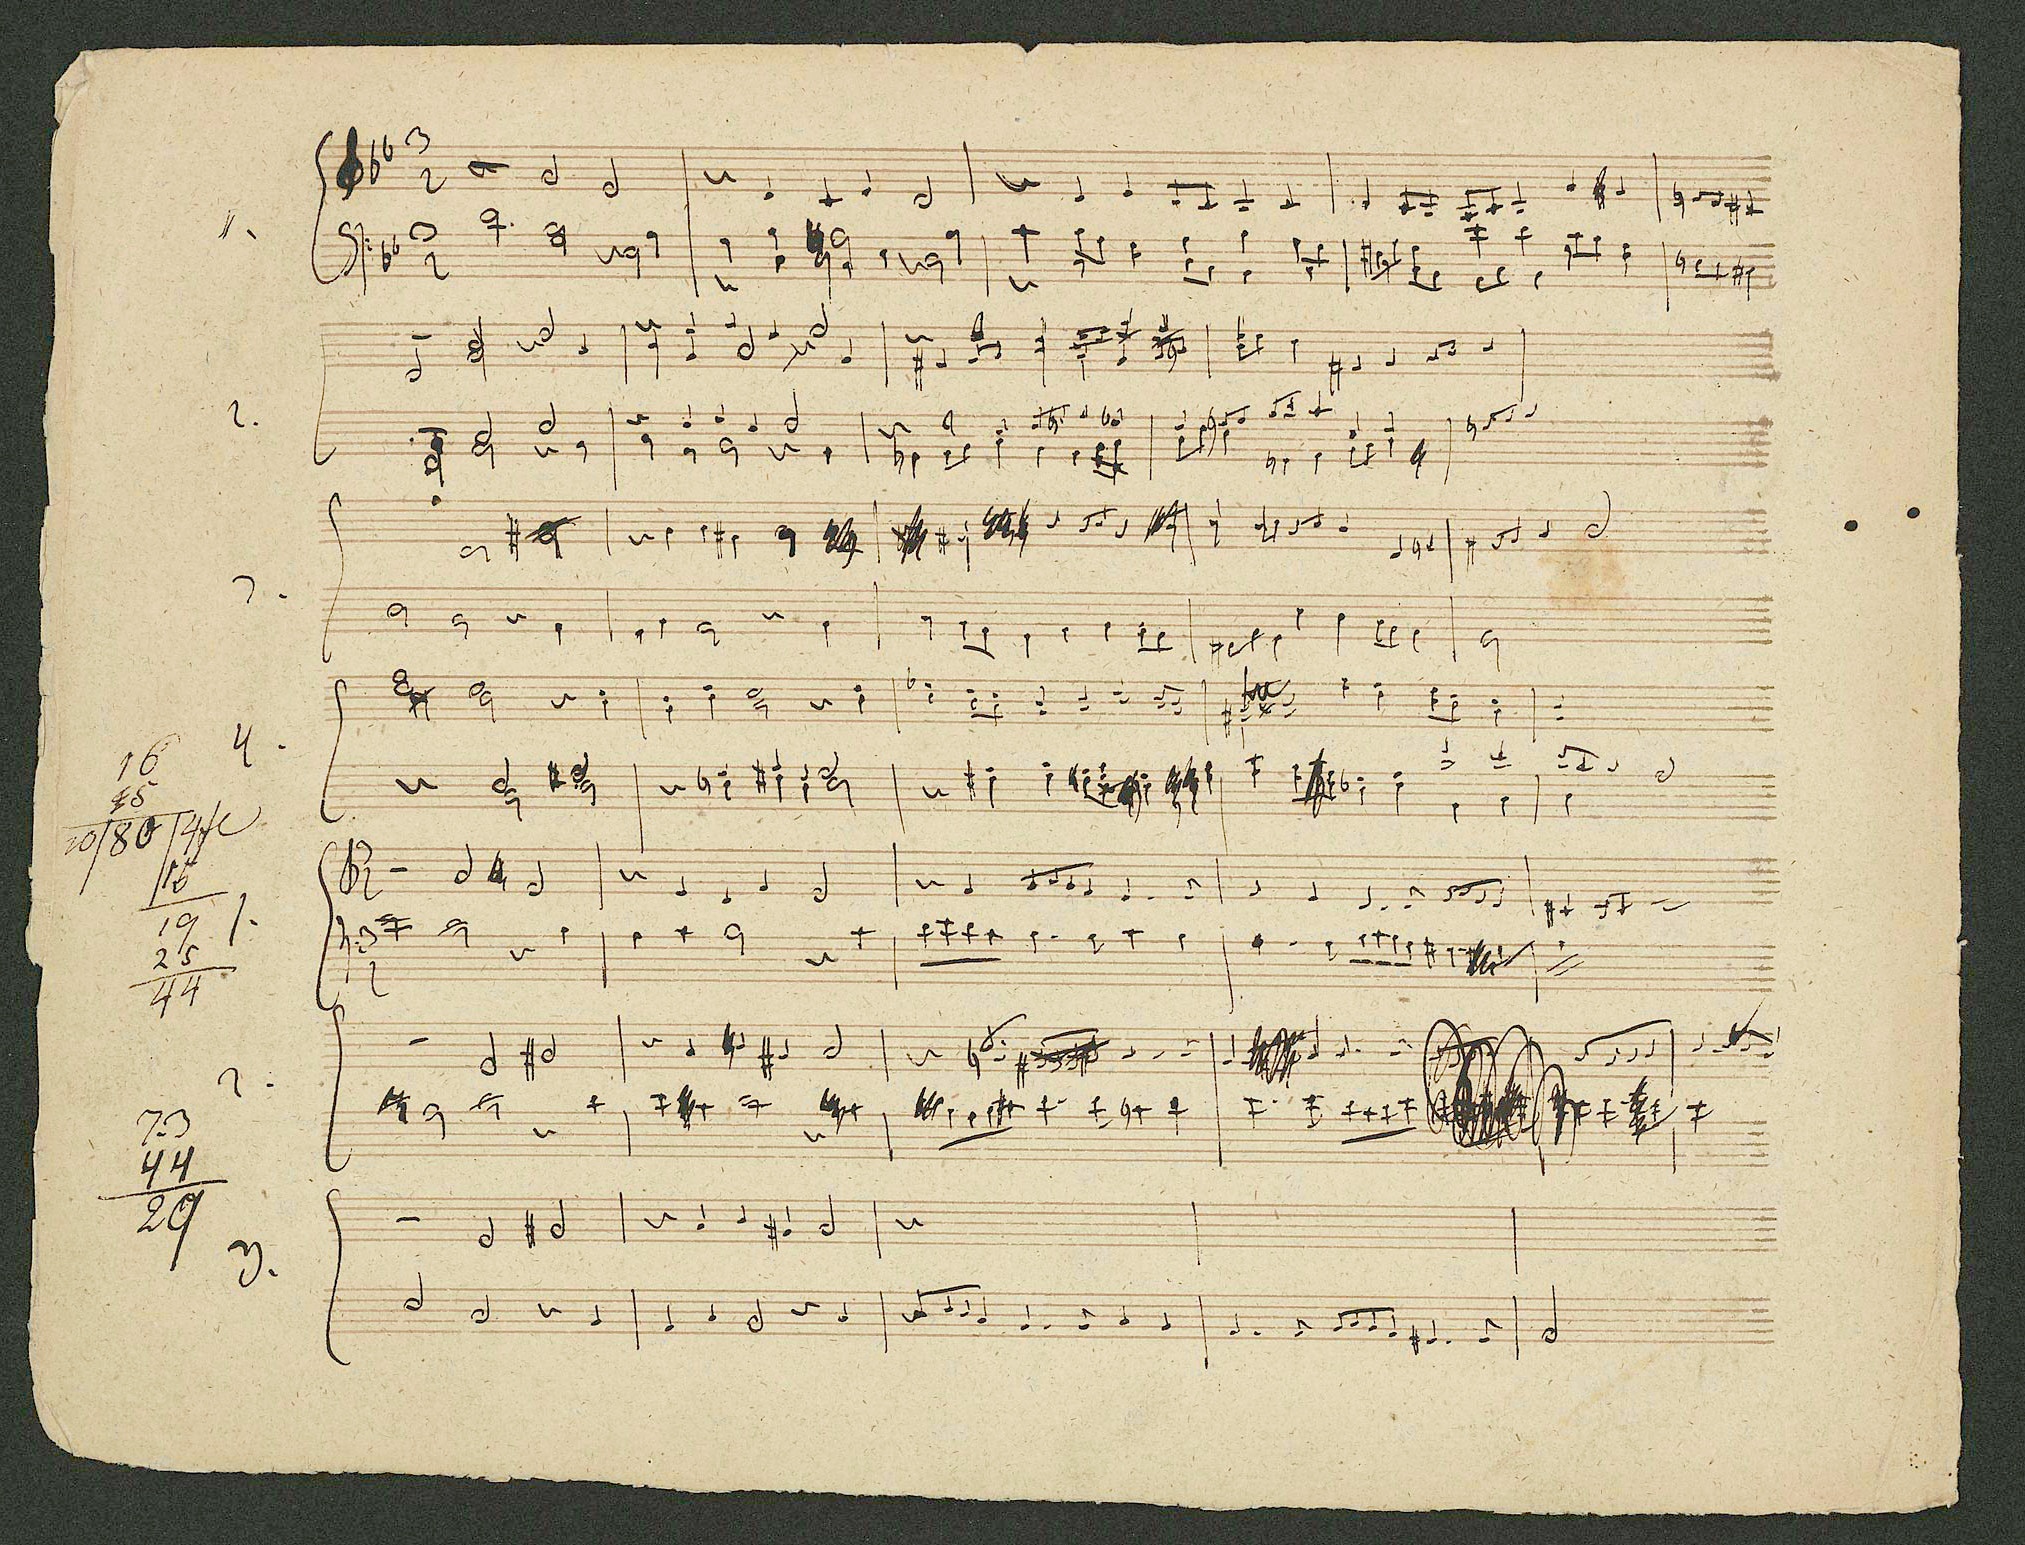 1.
2.
3.
4.
16
45
20/80/4
16
19
25
44
1.
2.
73
44
29
3.